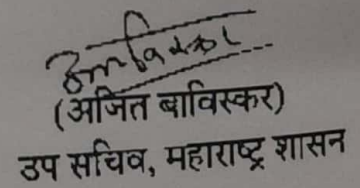 (अजित बाविस्कर)
उप सचिव, महाराष्ट्र शासन